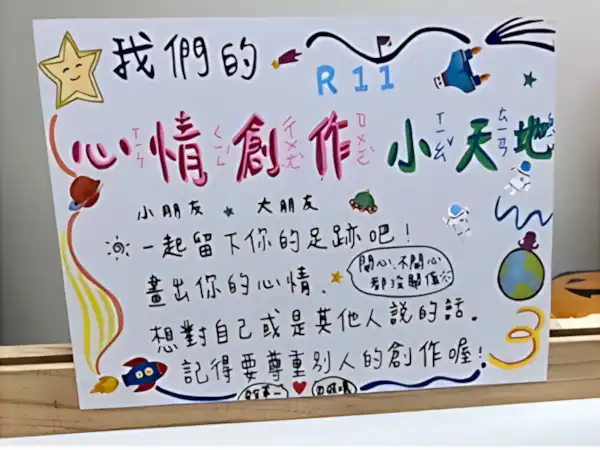 我們的
R11
心情創作小天地
小朋友 大朋友
一起留下你的足跡吧!
畫出你的心情、
開心、不開心
都沒關係
想對自己或是其他人說的話.
記得要尊重別人的創作喔!